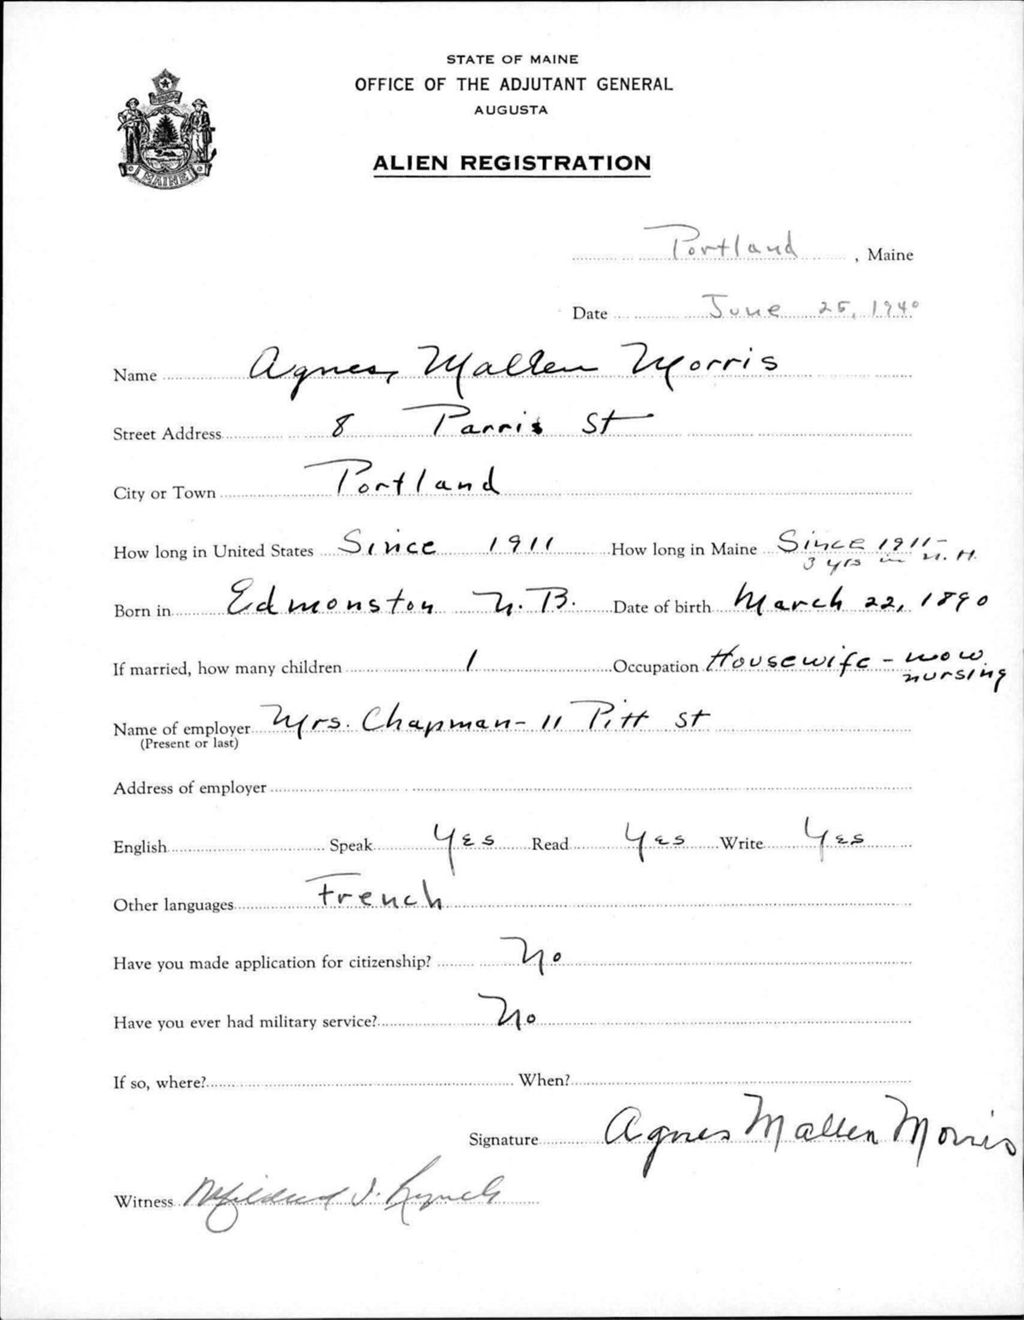 STATE OF MAINE
OFFICE OF THE ADJUTANT GENERAL
AUGUSTA
MAINE
ALIEN REGISTRATION
Portland, Maine
Date June 25, 1940
Name Agnes, Mallen Morris
Street Address 8 Parris St
City or Town Portland
How long in United States Since 1911 How long in Maine Since 1911-
3 yrs in N. H.
Born in Edmonston N. B. Date of birth March 22, 1890
If married, how many children 1 Occupation Housewife - now
nursing
Name of employer Mrs. Chapman - 11 Pitt St
(Present or last)
Address of employer
English Speak Yes Read Yes Write Yes
Other languages French
Have you made application for citizenship? No
Have you ever had military service? No
If so, where? When?
Signature Agnes Mallen Morris
Witness Mildred I. Lynch